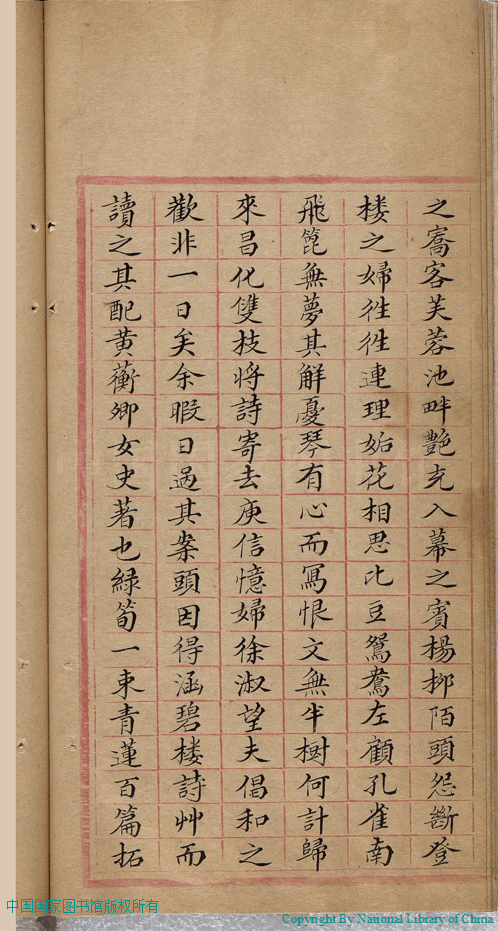 之窩客芙蓉池畔艶充入幕之賓楊柳陌頭怨斷登
楼之婦徃徃連理妬花相思比豆鴛鴦左顧孔雀南
飛箆無夢其解憂琴有心而冩恨文無半樹何計歸
來昌化雙枝将詩寄去庾信憶婦徐淑望夫倡和之
歡非一日矣余暇日過其案頭因得涵碧楼詩艸而
讀之其配黄蘅卿女史著也緑筍一束青蓮百篇拓
中国国家图书馆版权所有
Copyright By National Library of China